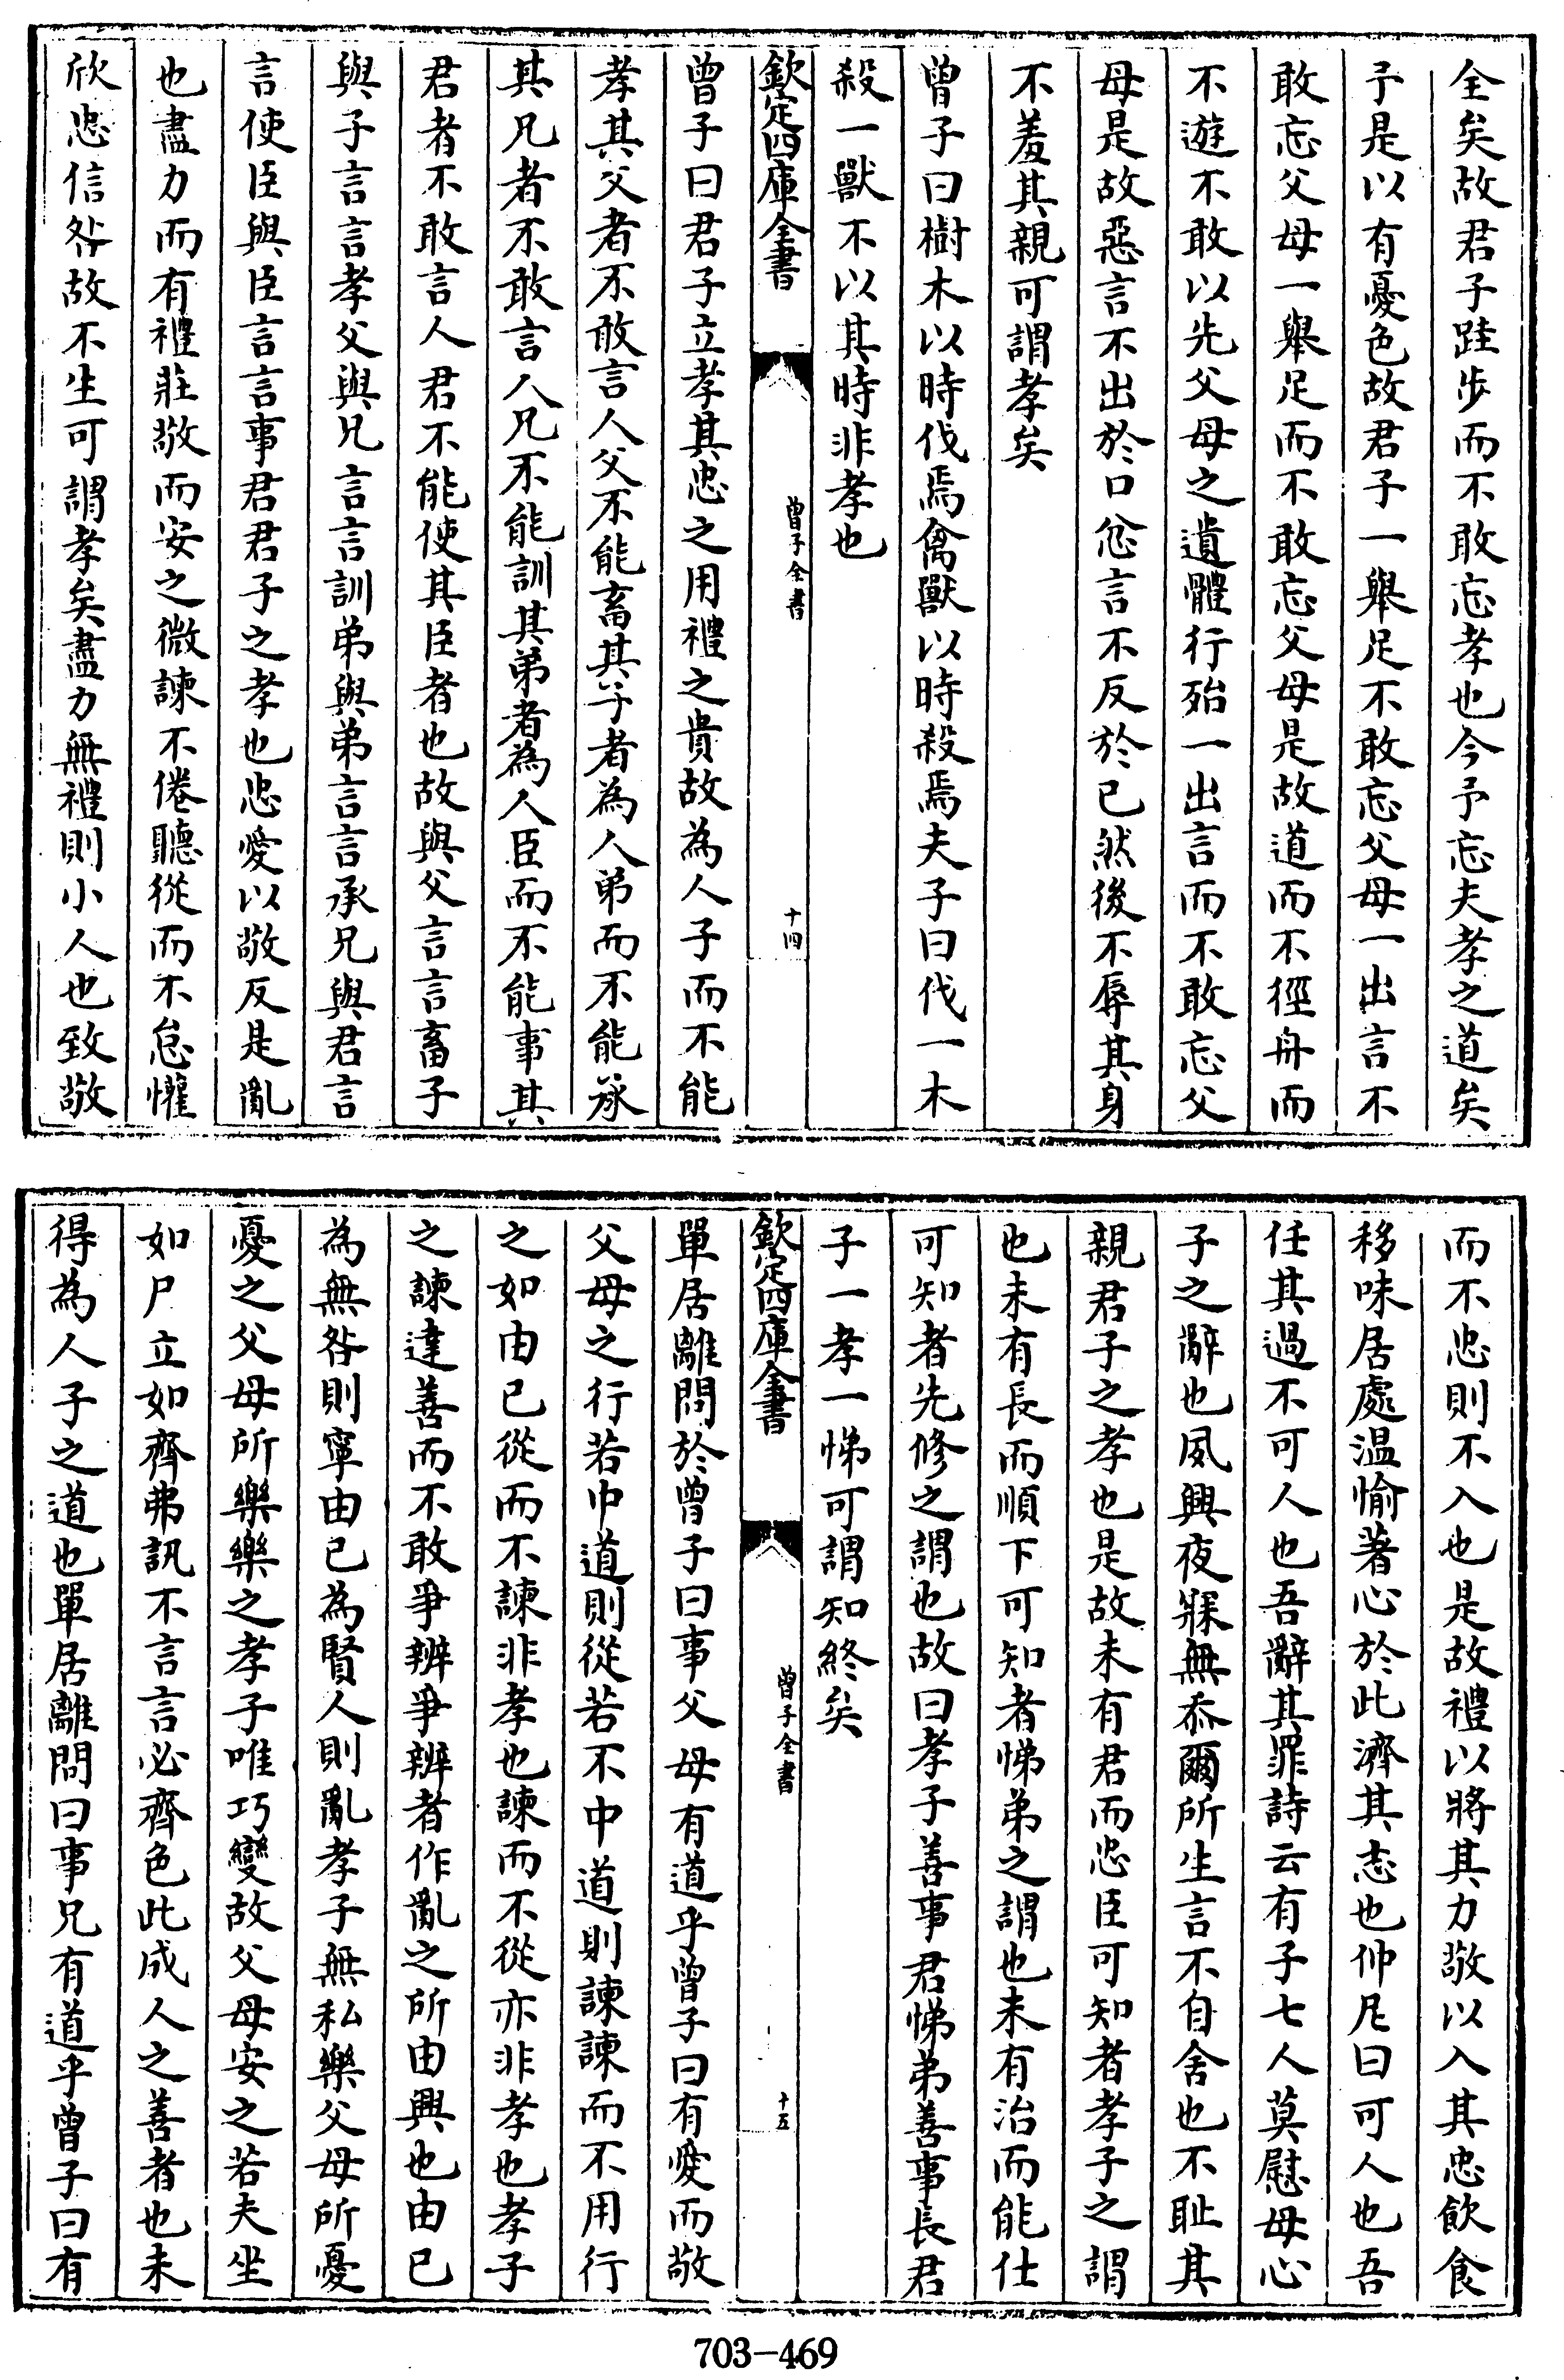 全矣故君子跬步而不敢忘孝也今予忘夫孝之道矣
予是以有憂色故君子一舉足不敢忘父母一出言不
敢忘父母一舉足而不敢忘父母是故道而不徑舟而
不遊不敢以先父母之遺體行殆一出言而不敢忘父
母是故惡言不出於口忿言不反於已然後不辱其身
不羞其親可謂孝矣
曾子曰樹木以時伐焉禽獸以時殺焉夫子曰伐一木
殺一獸不以其時非孝也
欽定四庫全書
曾子全書
十四
曾子曰君子立孝其忠之用禮之貴故為人子而不能
孝其父者不敢言人父不能畜其子者為人弟而不能承
其兄者不敢言人兄不能訓其弟者為人臣而不能事其
君者不敢言人君不能使其臣者也故與父言言畜子
與子言言孝父與兄言言訓弟與弟言言承兄與君言
言使臣與臣言言事君君子之孝也忠愛以敬反是亂
也盡力而有禮莊敬而安之微諫不倦聽從而不怠懽
欣忠信咎故不生可謂孝矣盡力無禮則小人也致敬
而不忠則不入也是故禮以將其力敬以入其忠飲食
移味居處溫愉著心於此濟其志也仲尼曰可人也吾
任其過不可人也吾辭其罪詩云有子七人莫慰母心
子之辭也夙興夜寐無忝爾所生言不自舍也不耻其
親君子之孝也是故未有君而忠臣可知者孝子之謂
也未有長而順下可知者悌弟之謂也未有治而能仕
可知者先修之謂也故曰孝子善事君悌弟善事長君
子一孝一悌可謂知終矣
欽定四庫全書
曾子全書
十五
單居離問於曾子曰事父母有道乎曾子曰有愛而敬
父母之行若中道則從若不中道則諫諫而不用行
之如由已從而不諫非孝也諫而不從亦非孝也孝子
之諫達善而不敢爭辨爭辨者作亂之所由興也由已
為無咎則寧由已為賢人則亂孝子無私樂父母所憂
憂之父母所樂樂之孝子唯巧變故父母安之若夫坐
如尸立如齊弗訊不言言必齊色此成人之善者也未
得為人子之道也單居離問曰事兄有道乎曾子曰有
703-469